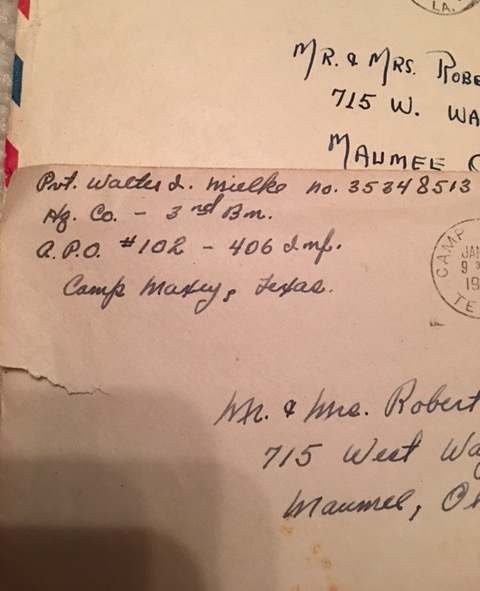 LA.
MR. & MRS. ROBE
715 W. WA
MAUMEE O
Pvt. Walter I. Mielke no. 35348513
Hq. Co. - 3rd Bn.
A.P.O. #102 - 406 Inf.
Camp Maxey, Texas.
CAMP
JAN
9
19
TE
Mr. & Mrs. Robert
715 West Way
Maumee, Oh